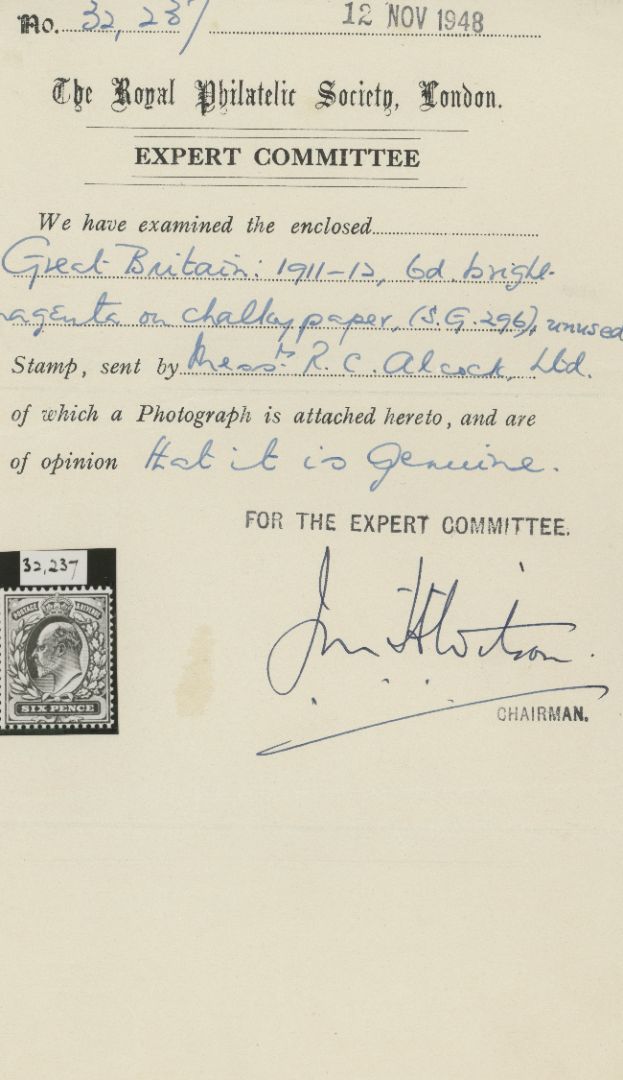 No. 32,237 12 NOV 1948
The Royal Philatelic Society, London.
EXPERT COMMITTEE
We have examined the enclosed
Great Britain: 1911-12, 6d. bright
magenta on chalky paper, (S.G. 296), unused
Stamp, sent by Messrs R. C. Alcock, Ltd.
of which a Photograph is attached hereto, and are
of opinion that it is genuine.
FOR THE EXPERT COMMITTEE.
32,237
POSTAGE REVENUE
SIX PENCE
CHAIRMAN.